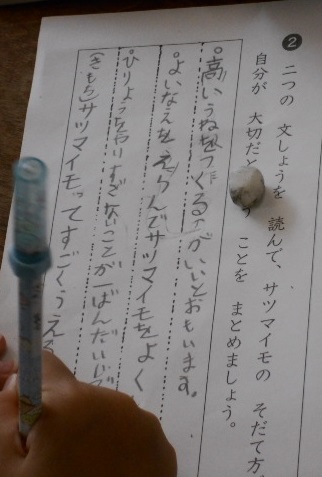 ❷ 二つの 文しょうを 読んで、サツマイモの そだて方
自分が 大切だと う ことを まとめましょう。
。高いうねをつくる方がいいとおもいます。
。よいなえをえらんでサツマイモをよく
。ひりょうをやりすぎないことが一ばんだいじ
(きもち)サツマイモってすごくうえ